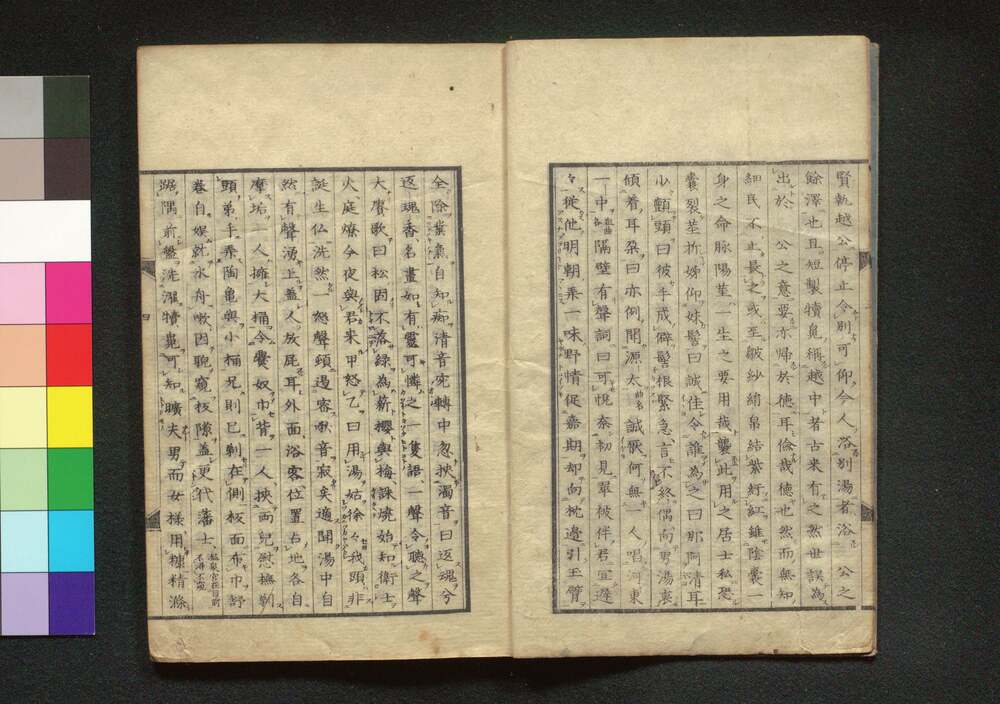 賢執越公停止令別可仰令人浴別湯者浴 公之
餘澤也且短製犢鼻稱越中者古來有之然世誤為
出於 公之意要亦帰於德耳倹哉德也然而無知
細民不止長之或至皺紗綃帛結紫紆紅雖陰囊一
身之命脉陽莖一生之要用哉襲此用之居士私恐
囊裂莖折姊仰妹髻曰誠佳令誰為之曰那阿清耳
少顫頭曰彼手戒僻髻根緊急言不終偶向男湯裏
傾着耳朶曰亦例開源太曲名誠厭何無一人唱河東
一中各歌曲隔壁有聲詞曰可悅奈初見翠被伴君宜遲
々後他明朝乘一味野情促嘉期却向枕邊引玉臂
全除糞氣自知痴清音宛轉中忽挾濁音曰返魂兮
返魂香名畫如有靈可憐之一隻語一聲令聽之聲
大賡歌曰松因不落綠為薪櫻與梅誅燒始知衛士
火庭燎今夜與君来甲怒乙曰用湯姑徐々我頭非
誕生仏洗然一經聲頸邊客吸音寂矣適聞湯中自
然有聲湧上蓋人放屁耳外面浴客位置占地各自
摩垢一人擁大桶令爨奴巾背一人挾両兒慰撫剃
頭弟手弄陶龜與小桶兄則已剃在側板面布巾舒
卷自娯就水舟嗽因睨窺板隙蓋更代藩士
踞隅前盤洗濯犢鼻可知曠夫男而女様用糠精滌
四